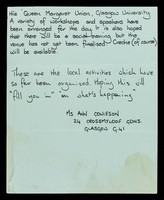 the Queen Margaret Union, Glasgow University.
A variety of workshops and speakers have
been arranged for the day. It is also hoped
that there will be a social evening but the
venue has not yet been finalised. Creche (of course)
will be available.
These are the local activities which have
so far been organised. Hoping this will
"fill you in" on what's happening
Ms Ann
24
Glasgow G.41